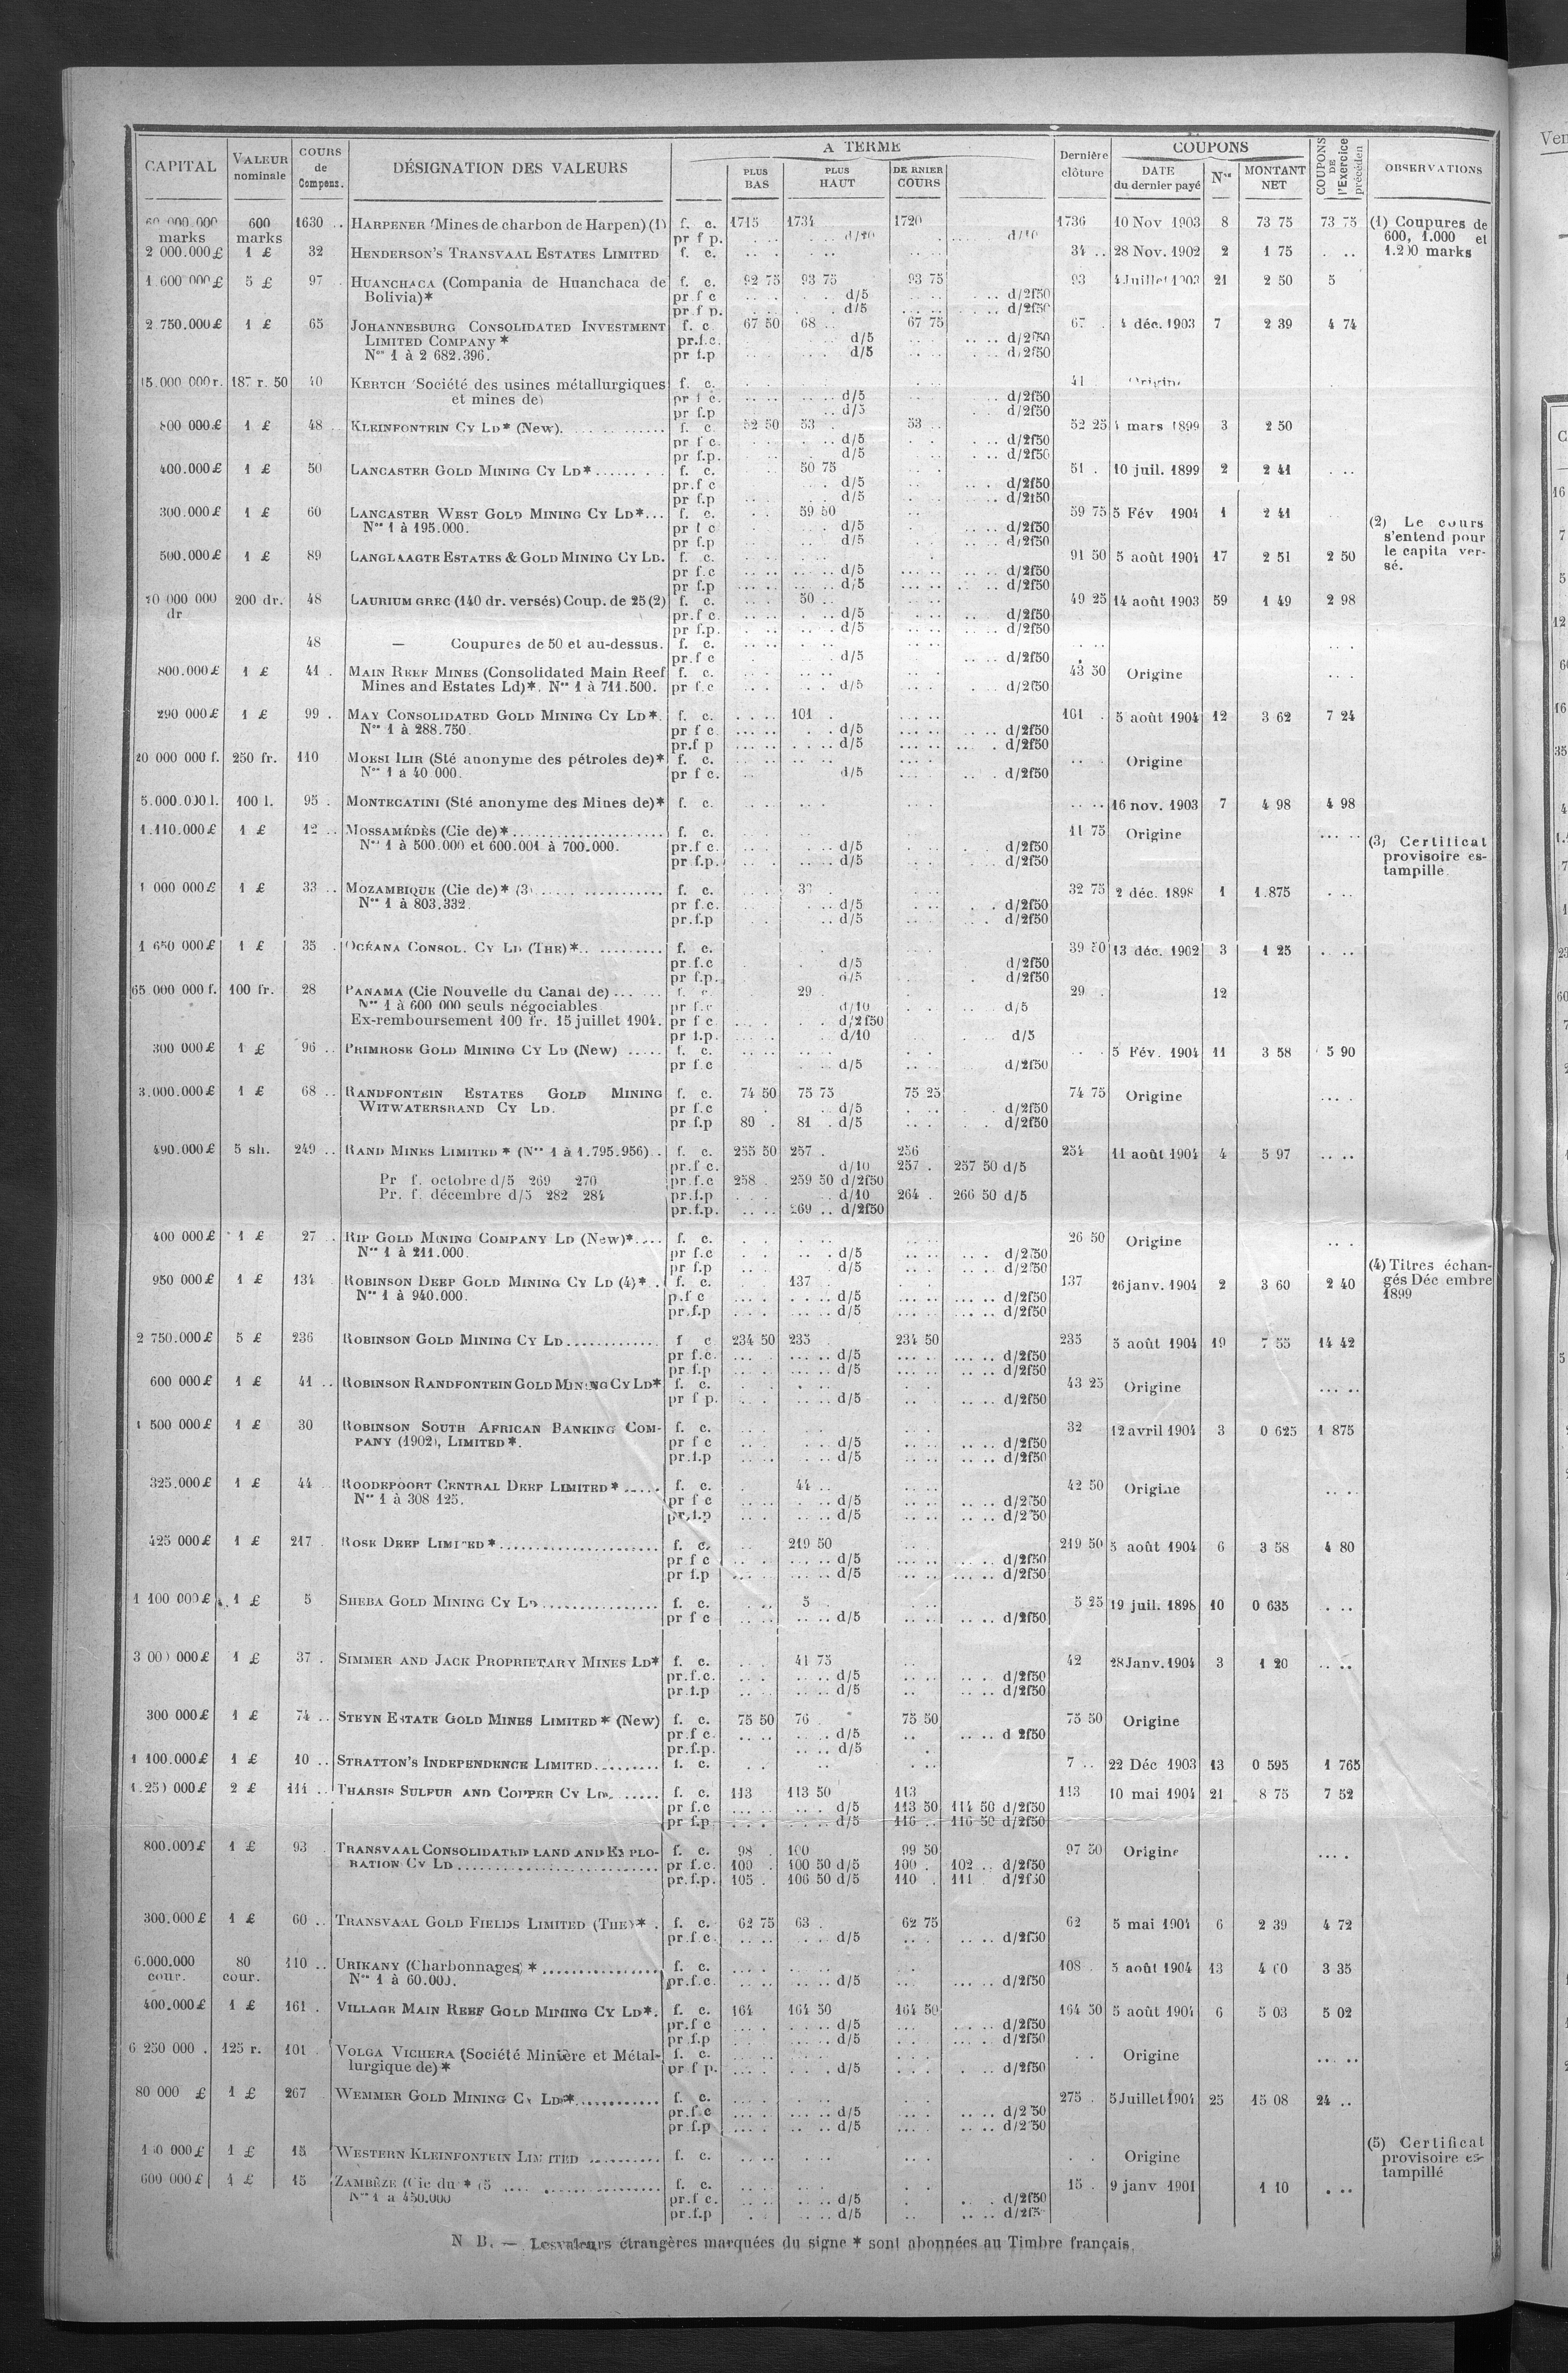 CAPITAL | VALEUR nominale | COURS de Compens. | DÉSIGNATION DES VALEURS | A TERME | Dernière clôture | COUPONS | COUPONS DE l'Exercice précéden | OBSERVATIONS
PLUS BAS | PLUS HAUT | DERNIER COURS | DATE du dernier payé | Nos | MONTANT NET
60 000.000 600 1630 .. HARPENER (Mines de charbon de Harpen) (1) f. c. 1715 1734 1720 1736 10 Nov 1903 8 73 75 73 75 (1) Coupures de
marks marks pr f p. d/10 d/10 600, 1.000 et
2 000.000£ 1 £ 32 HENDERSON'S TRANSVAAL ESTATES LIMITED f. c. 34 .. 28 Nov. 1902 2 1 75 1.200 marks
1 600 000£ 5 £ 97 HUANCHACA (Compania de Huanchaca de f. c. 92 75 93 75 93 75 93 4 Juillet 1903 21 2 50 5
Bolivia)* pr f c d/5 d/2f50
pr f p. d/5 d/2f50
2.750.000£ 1 £ 65 JOHANNESBURG CONSOLIDATED INVESTMENT f. c 67 50 68 .. 67 75 67 . 4 déc. 1903 7 2 39 4 74
LIMITED COMPANY * pr.f.c. d/5 d/2f50
Nos 1 à 2 682.396. pr f.p d/5 d/2f50
15.000 000 r. 187 r. 50 40 KERTCH (Société des usines métallurgiques f. c. 41 Origine
et mines de) pr f c. d/5 d/2f50
pr f.p d/5 d/2f50
800 000£ 1 £ 48 KLEINFONTEIN CY LD* (New). f. c. 52 50 53 .. 53 .. 52 25 4 mars 1899 3 2 50
pr f c. d/5 d/2f50
pr f.p. d/5 d/2f50
400.000£ 1 £ 50 LANCASTER GOLD MINING CY LD* f. c. 50 75 51 . 10 juil. 1899 2 2 41
pr.f c d/5 d/2f50
pr f.p d/5 d/2f50
300.000£ 1 £ 60 LANCASTER WEST GOLD MINING CY LD*... f. c. 59 50 59 75 5 Fév 1904 1 2 41
Nos 1 à 195.000. pr f c d/5 d/2f50 (2) Le cours
pr f.p d/5 d/2f50 s'entend pour
500.000£ 1 £ 89 LANGLAAGTE ESTATES & GOLD MINING CY LD. f. c. 91 50 5 août 1904 17 2 51 2 50 le capita ver-
pr f.c d/5 d/2f50 sé.
pr f.p d/5 d/2f50
000 000 200 dr. 48 LAURIUM GREC (140 dr. versés) Coup. de 25 (2) f. c. 50 .. 49 25 14 août 1903 59 1 49 2 98
dr pr.f c. d/5 d/2f50
pr f.p. d/5 d/2f50
48 — Coupures de 50 et au-dessus. f. c.
pr.f c d/5 d/2f50
800.000£ 1 £ 41 . MAIN REEF MINES (Consolidated Main Reef f. c. 43 50 Origine
Mines and Estates Ld)*. Nos 1 à 711.500. pr f.c d/5 d/2f50
290 000£ 1 £ 99 . MAY CONSOLIDATED GOLD MINING CY LD*. f. c. 101 . 101 . 5 août 1904 12 3 62 7 24
Nos 1 à 288.750. pr f c. d/5 d/2f50
pr.f p d/5 d/2f50
20 000 000 f. 250 fr. 110 MOESI ILIR (Sté anonyme des pétroles de)* f. c. Origine
Nos 1 à 40 000. pr f c. d/5 d/2f50
5.000.000 l. 100 l. 95 . MONTECATINI (Sté anonyme des Mines de)* f. c. 16 nov. 1903 7 4 98 4 98
1.110.000£ 1 £ 12 .. MOSSAMÉDÈS (Cie de)* f. c. 11 75 Origine (3) Certificat
Nos 1 à 500.000 et 600.001 à 700.000. pr.f c. d/5 d/2f50 provisoire es-
pr f.p. d/5 d/2f50 tampille.
1 000 000£ 1 £ 33 .. MOZAMBIQUE (Cie de)* (3) f. c. 32 75 2 déc. 1898 1 1.875
Nos 1 à 803.332. pr f.c. d/5 d/2f50
pr.f.p d/5 d/2f50
1 650 000£ 1 £ 35 . OCÉANA CONSOL. CY LD (THE)* f. c. 39 50 13 déc. 1902 3 1 25
pr.f.c d/5 d/2f50
pr f.p. d/5 d/2f50
65 000 000 f. 100 fr. 28 PANAMA (Cie Nouvelle du Canal de) f. c. 29 . 29 . 12
Nos 1 à 600 000 seuls négociables. pr f.c d/10 d/5
Ex-remboursement 100 fr. 15 juillet 1904. pr f c d/2f50
pr f.p. d/10 d/5
300 000£ 1 £ 96 .. PRIMROSE GOLD MINING CY LD (New) f. c. 5 Fév. 1904 11 3 58 5 90
pr f.c d/5 d/2f50
3.000.000£ 1 £ 68 .. RANDFONTEIN ESTATES GOLD MINING f. c. 74 50 75 75 75 25 74 75 Origine
WITWATERSRAND CY LD. pr f.c d/5 d/2f50
pr f.p 80 . 81 . d/5 d/2f50
490.000£ 5 sh. 249 .. RAND MINES LIMITED * (Nos 1 à 1.795.956) f. c. 255 50 257 . 256 254 11 août 1904 4 5 97
pr.f c. d/10 257 . 257 50 d/5
Pr f. octobre d/5 269 270 pr.f.c 258 . 259 50 d/2f50
Pr. f. décembre d/5 282 284 pr.f.p d/10 264 . 266 50 d/5
pr.f.p. 269 .. d/2f50
400 000£ 1 £ 27 .. RIP GOLD MINING COMPANY LD (New)* f. c. 26 50 Origine
Nos 1 à 211.000. pr f.c d/5 d/2f50
pr f.p d/5 d/2f50 (4) Titres échan-
950 000£ 1 £ 134 ROBINSON DEEP GOLD MINING CY LD (4)* f. c. 137 137 26 janv. 1904 2 3 60 2 40 gés Décembre
Nos 1 à 940.000. p.f c d/5 d/2f50 1899
pr.f.p d/5 d/2f50
2 750.000£ 5 £ 236 ROBINSON GOLD MINING CY LD f c 234 50 235 . 234 50 235 5 août 1904 19 7 55 14 42
pr f.c. d/5 d/2f50
pr f.p d/5 d/2f50
600 000£ 1 £ 41 .. ROBINSON RANDFONTEIN GOLD MINING CY LD* f. c. 43 25 Origine
pr f p. d/5 d/2f50
1 500 000£ 1 £ 30 ROBINSON SOUTH AFRICAN BANKING COM- f. c. 32 12 avril 1904 3 0 625 1 875
PANY (1902), LIMITED*. pr f c d/5 d/2f50
pr.f.p d/5 d/2f50
325.000£ 1 £ 44 ROODEPOORT CENTRAL DEEP LIMITED * f. c. 44 .. 42 50 Origine
Nos 1 à 308 125. pr f c d/5 d/2f50
pr.f.p d/5 d/2f50
425 000£ 1 £ 217 ROSE DEEP LIMITED * f. c. 219 50 219 50 5 août 1904 6 3 58 4 80
pr f c d/5 d/2f50
pr f.p d/5 d/2f50
1 100 000£ 1 £ 5 SHEBA GOLD MINING CY LD f. c. 5 . 5 25 19 juil. 1898 10 0 635
pr f c d/5 d/2f50
3 000 000£ 1 £ 37 . SIMMER AND JACK PROPRIETARY MINES LD* f. c. 41 75 42 28 Janv. 1904 3 1 20
pr.f.c. d/5 d/2f50
pr.f.p d/5 d/2f50
300 000£ 1 £ 74 .. STEYN ESTATE GOLD MINES LIMITED * (New) f. c. 75 50 76 . 75 50 75 50 Origine
pr.f c. d/5 d 2f50
pr.f.p. d/5
1 100.000£ 1 £ 10 .. STRATTON'S INDEPENDENCE LIMITED f. c. 7 .. 22 Déc 1903 13 0 595 1 765
1.250 000£ 2 £ 111 .. THARSIS SULFUR AND COPPER CY LD f. c. 113 113 50 113 113 10 mai 1904 21 8 75 7 52
pr f.c d/5 113 50 114 50 d/2f50
pr f.p d/5 116 .. 116 50 d/2f50
800.000£ 1 £ 93 TRANSVAAL CONSOLIDATED LAND AND EXPLO- f. c. 98 . 100 99 50 97 50 Origine
RATION CY LD pr f.c. 100 . 100 50 d/5 100 . 102 .. d/2f50
pr.f.p. 105 . 106 50 d/5 110 . 111 d/2f50
300.000£ 1 £ 60 .. TRANSVAAL GOLD FIELDS LIMITED (THE)* . f. c. 62 75 63 . 62 75 62 5 mai 1904 6 2 39 4 72
pr.f.c. d/5 d/2f50
6.000.000 80 110 .. URIKANY (Charbonnages) * f. c. 108 . 5 août 1904 13 4 00 3 35
cour. cour. Nos 1 à 60.000. pr.f.c. d/5 d/2f50
400.000£ 1 £ 161 . VILLAGE MAIN REEF GOLD MINING CY LD*. f. c. 164 164 50 164 50 164 50 5 août 1904 6 5 03 5 02
pr.f c d/5 d/2f50
pr f.p d/5 d/2f50
6 250 000 . 125 r. 101 VOLGA VICHERA (Société Minière et Métal- f. c. Origine
lurgique de)* pr f p. d/5 d/2f50
80 000 £ 1 £ 267 WEMMER GOLD MINING CY LD* f. c. 275 . 5 Juillet 1904 25 15 08 24 ..
pr.f c d/5 d/2f50
pr f.p d/5 d/2f50
000£ 1 £ 15 WESTERN KLEINFONTEIN LIMITED f. c. Origine (5) Certificat
provisoire es-
600 000£ 1 £ 15 ZAMBÈZE (Cie du * (5 f. c. 15 . 9 janv 1901 1 10 tampillé
Nos 1 à 450.000 pr.f c. d/5 d/2f50
pr.f.p d/5 d/2f5
N B. — Les valeurs étrangères marquées du signe * sont abonnées au Timbre français.